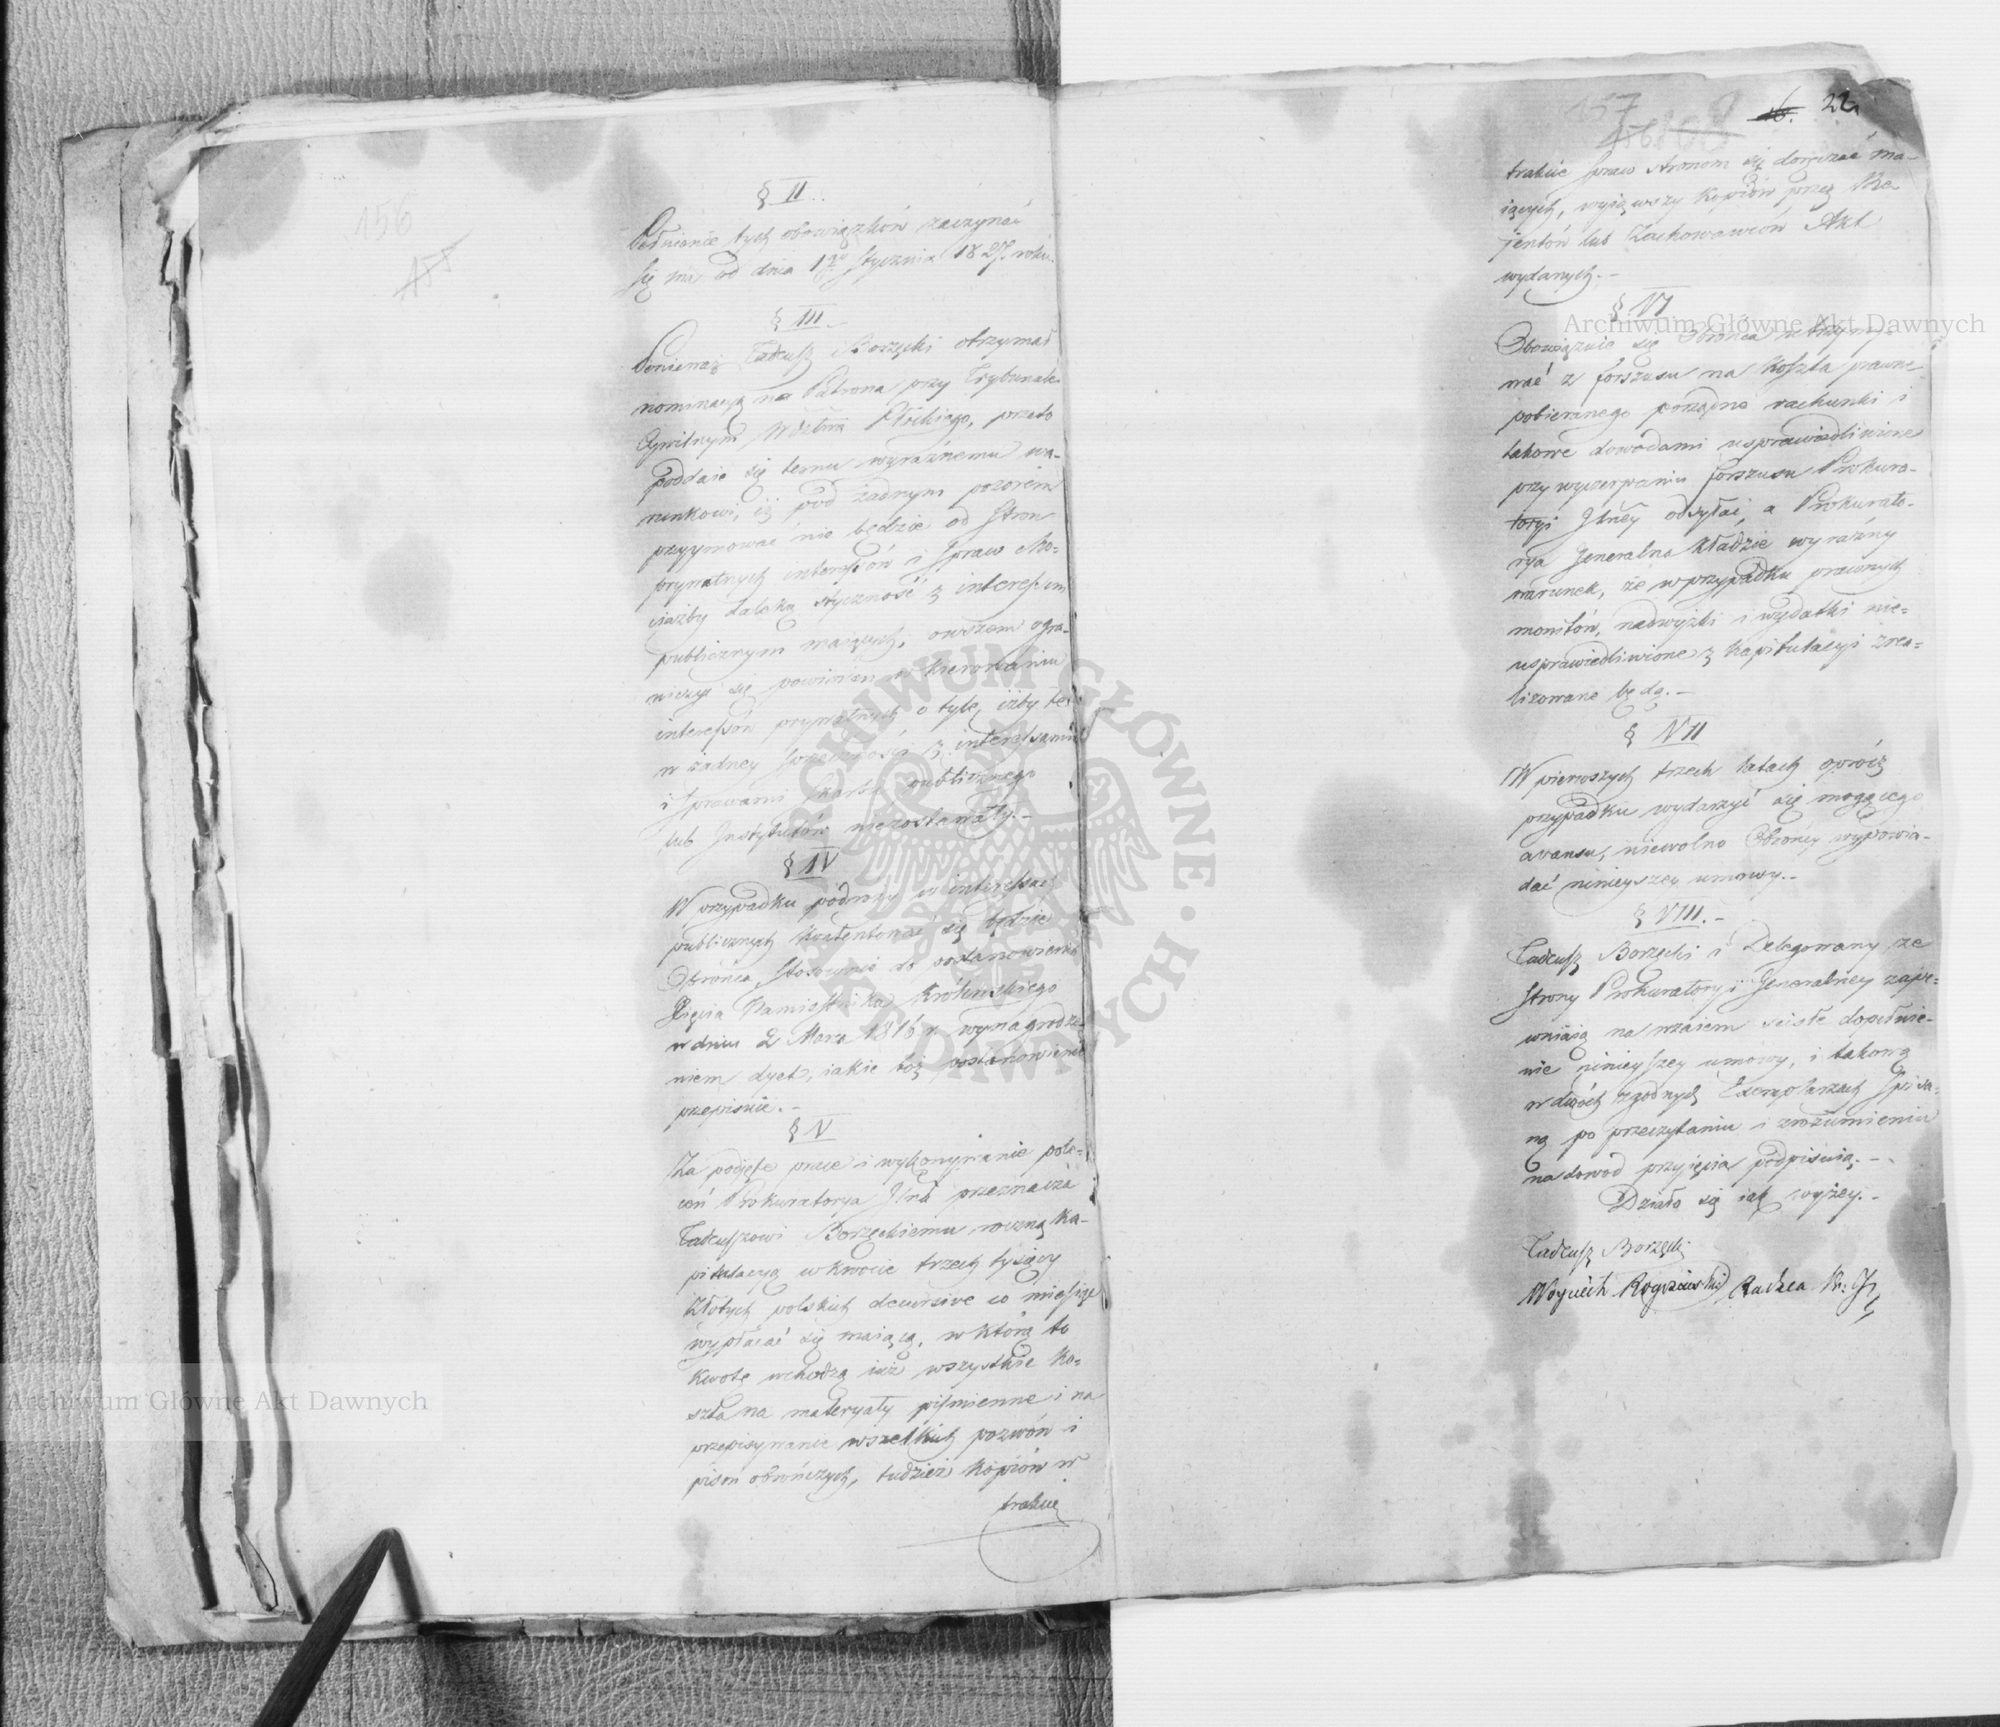 156
§ II.
Pełnienie tych obowiązków zaczynać
się ma od dnia 1go Stycznia 1827. roku.
§ III.
Ponieważ Tadeusz Borzęcki otrzymał
nominacyą na Patrona przy Trybunale
Cywilnym Wdztwa Płockiego, przeto
poddaie się temu wyraźnemu wa-
runkowi, iż pod żadnym pozorem
przyymować nie będzie od Stron
prywatnych interessów i Spraw cho-
ciażby daleką styczność z interessem
publicznym maiących, owszem ogra-
niczyć się powinien w kierowaniu
interessów prywatnych o tyle, iżby te
w żadney sprzeczności z interessami
i Sprawami Skarbu publicznego
lub Instytutów niezostawały.-
§ IV
W przypadku podróży w interessach
publicznych kontentować się będzie
Obrońca stosownie do postanowienia
Xięcia Namiestnika Królewskiego
w dniu 2 Marca 1816 r. wynagrodze-
niem dyet, iakie toż postanowienie
przepisuie.-
§ V
Za podięte prace i wykonywanie pole-
ceń Prokuratorya Jlna przeznacza
Tadeuszowi Borzęckiemu roczną ka-
pitulacyą w kwocie trzech tysięcy
Złotych polskich decursive co miesiąc
wypłacać się maiącą, w którą to
kwotę wchodzą iuż wszystkie ko-
szta na materyały piśmienne i na
przepisywanie wszelkich pozwów i
pism obrończych, tudzież kopiów w
trakcie
157
22.
trakcie spraw stronom się doręczać ma-
iących, wyiąwszy kopiów przez Re-
jentów lub Zachowawców Akt
wydanych.-
§ VI
Obowiązuie się Obrońca utrzym-
wać z forszusu na koszta prawne
pobieranego porządne rachunki i
takowe dowodami usprawiedliwione
przy wyczerpaniu forszusu Prokura-
toryi Jlney odsyłać, a Prokurato-
rya Jeneralna kładzie wyraźny
warunek, że w przypadku prawnych
monitów, nadwyżki i wydatki nie-
usprawiedliwione z kapitulacyi zrea-
lizowane będą.-
§ VII
W pierwszych trzech latach oprócz
przypadku wydarzyć się mogącego
avansu, niewolno Obrońcy wypowia-
dać ninieyszey umowy.-
§ VIII.-
Tadeusz Borzęcki i Delegowany ze
strony Prokuratoryi Jeneralney zape-
wniaią nawzaiem ścisłe dopełnie-
nie ninieyszey umowy, i takową
w dwóch zgodnych Exemplarzach spisa-
ną po przeczytaniu i zrozumieniu
na dowód przyięcia podpisuią.-
Działo się iak wyżey.-
Tadeusz Borzęcki
Woyciech Radca
Archiwum Główne Akt Dawnych
Archiwum Główne Akt Dawnych
ARCHIWUM GŁÓWNE · AKT DAWNYCH ·